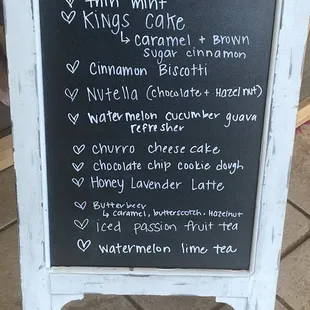 Thin Mint
♡ Kings Cake
↳ caramel + Brown
sugar cinnamon
♡ Cinnamon Biscotti
♡ Nutella (chocolate + Hazelnut)
♡ watermelon cucumber guava
refresher
♡ churro cheese cake
♡ chocolate chip cookie dough
♡ Honey Lavender Latte
♡ Butterbeer
↳ caramel, butterscotch, Hazelnut
♡ Iced passion fruit tea
♡ watermelon lime tea